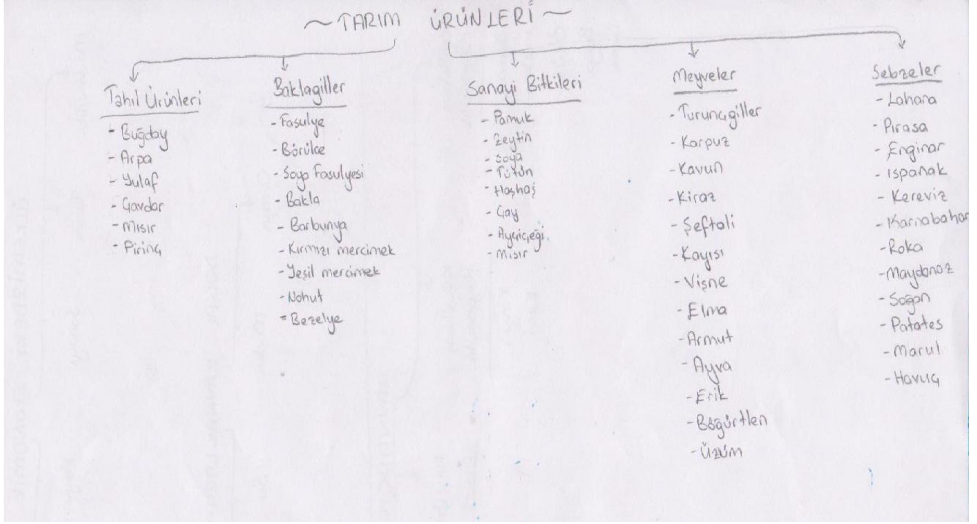 ~ TARIM ÜRÜNLERİ ~
Tahıl Ürünleri
- Buğday
- Arpa
- Yulaf
- Çavdar
- Mısır
- Pirinç
Baklagiller
- Fasulye
- Börülce
- Soya Fasulyesi
- Bakla
- Barbunya
- Kırmızı mercimek
- Yeşil mercimek
- Nohut
- Bezelye
Sanayi Bitkileri
- Pamuk
- Zeytin
- Soya
- Tütün
- Haşhaş
- Çay
- Ayçiçeği
- Mısır
Meyveler
- Turunçgiller
- Karpuz
- Kavun
- Kiraz
- Şeftali
- Kayısı
- Vişne
- Elma
- Armut
- Ayva
- Erik
- Böğürtlen
- Üzüm
Sebzeler
- Lahana
- Pırasa
- Enginar
- Ispanak
- Kereviz
- Karnabahar
- Roka
- Maydanoz
- Soğan
- Patates
- Marul
- Havuç